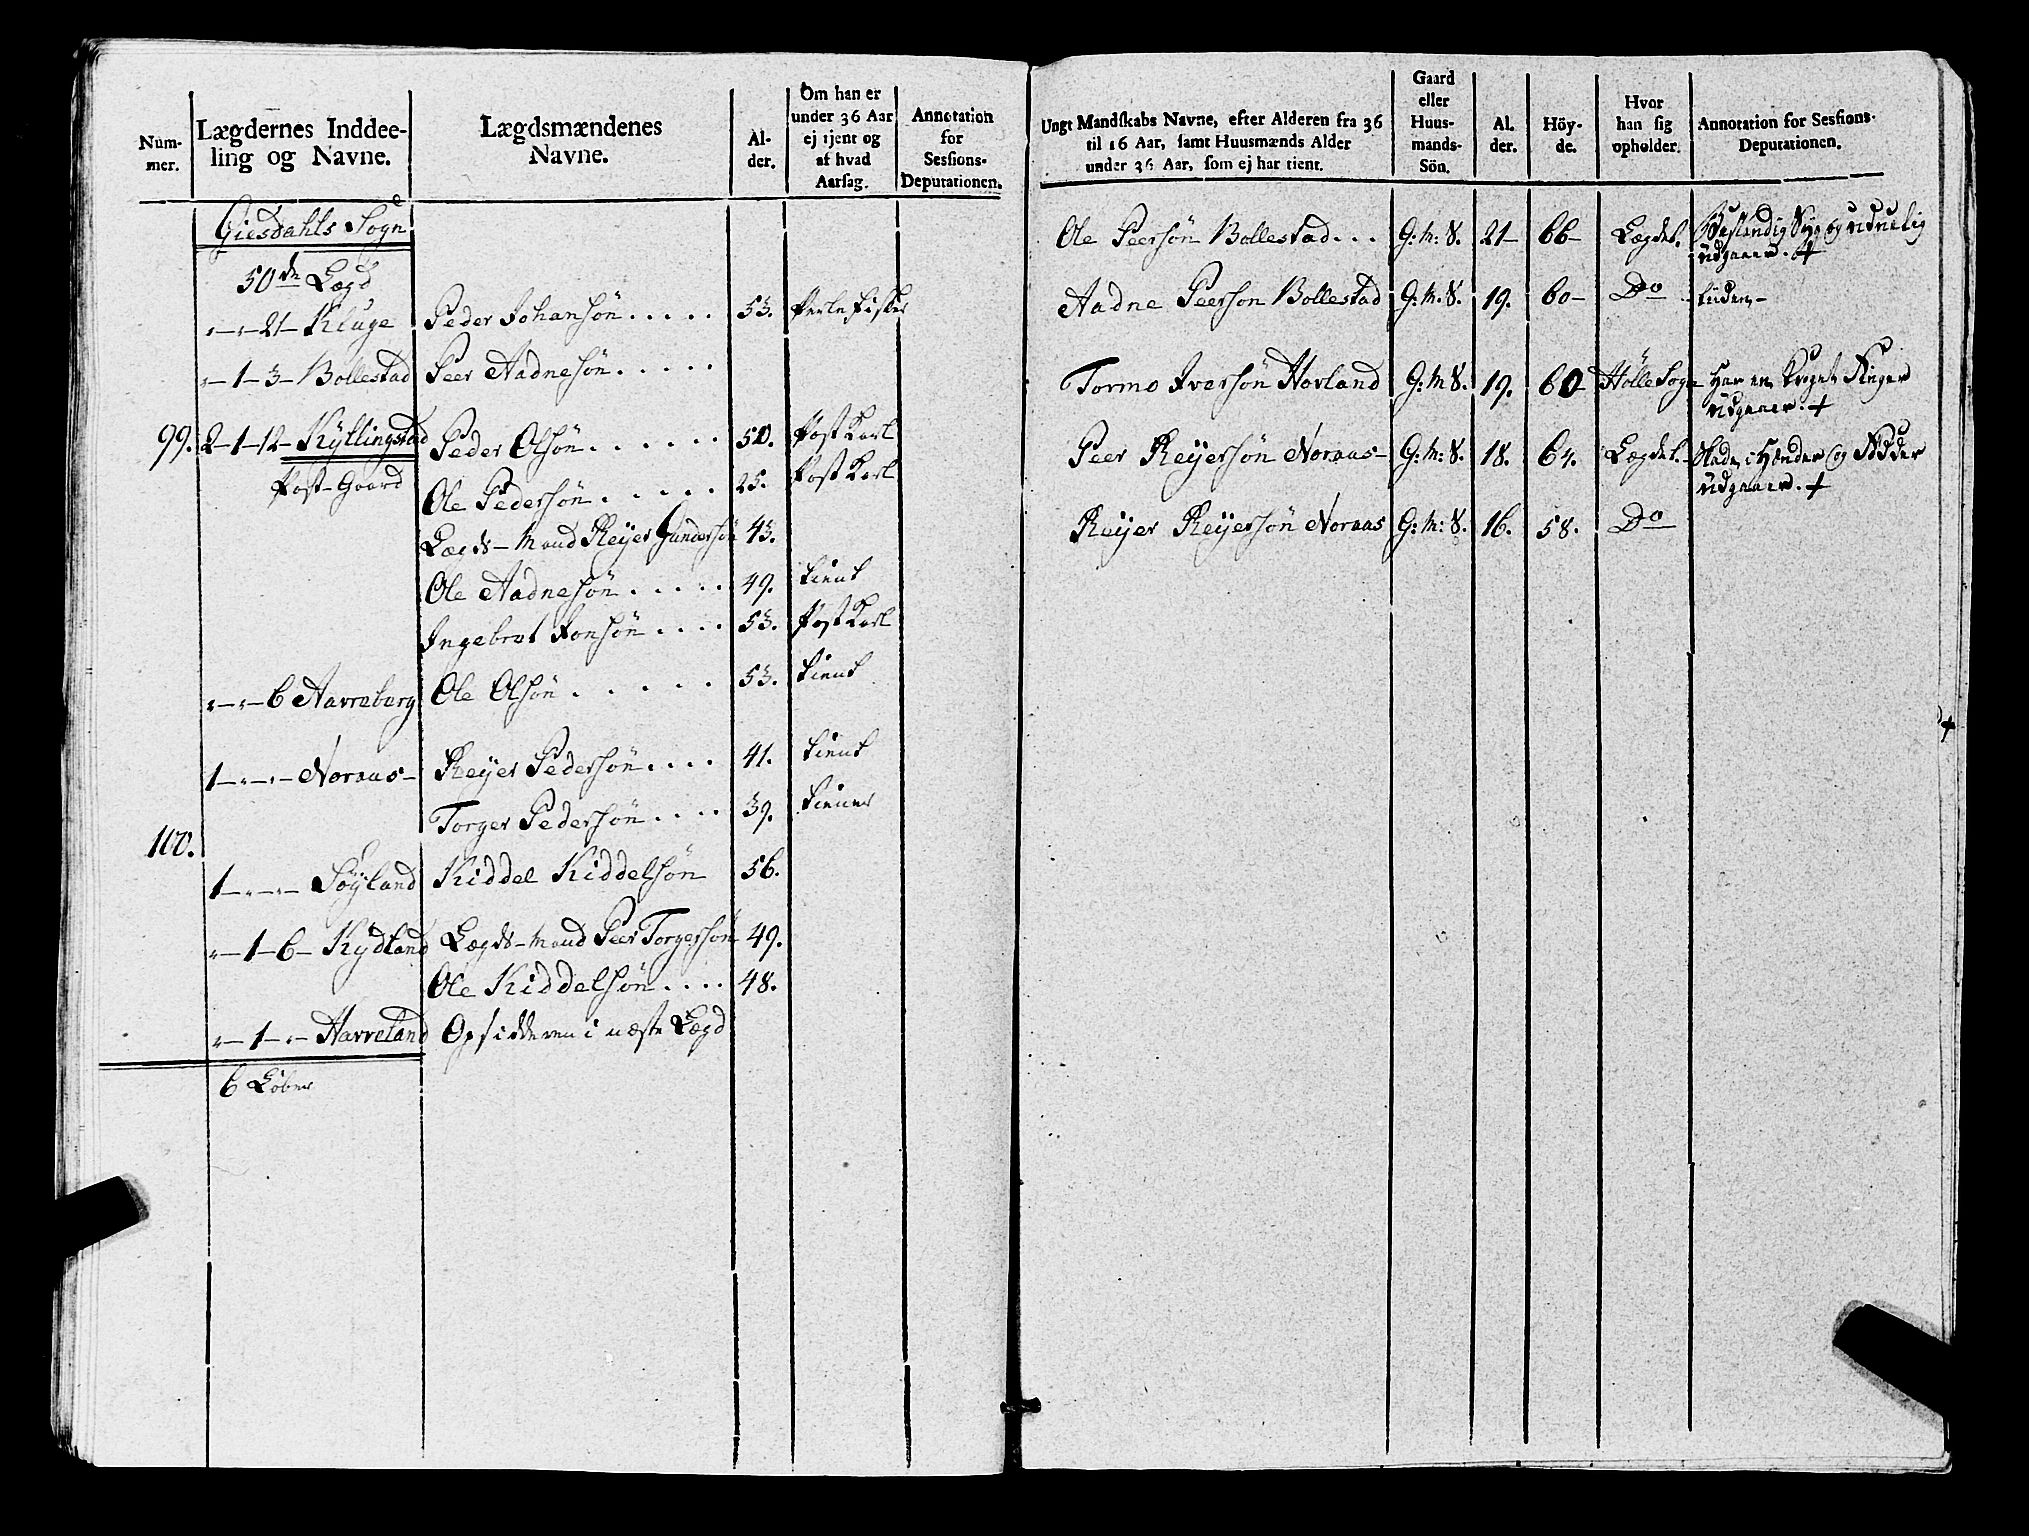 Num-
mer.
Lægdernes Inddee-
ling og Navne.
Lægdsmændenes
Navne.
Al-
der.
Om han er
under 36 Aar
ej tjent og
af hvad
Aarsag.
Annotation
for
Sessions-
Deputationen.
Giesdahls Sogn
50de Lægd
"-"-21- Kluge Peder Johansøn..... 53. Perle fisker
"-1-3- Bollestad Peer Aadnesøn.....
99. 2-1-12- Kyllingstad Peder Olsøn...... 50. Post Karl
Post-Gaard Ole Pedersøn..... 25. Post Karl
Lægds-Mand Reyer Gundersøn 43.
Ole Aadnesøn..... 49. tient
Ingebret Jonsøn.... 53. Post Karl
"-"-6 Aavreberg Ole Olsøn..... 53. tient
1-"-"- Noraas- Reyer Pedersøn.... 41. tient
Torger Pedersøn.... 39. tiener
100.
1-"-"- Søyland Kiddel Kiddelsøn 56.
"-1-6- Kydland Lægds-Mand Peer Torgersøn 49.
Ole Kiddelsøn.... 48.
"-1-"- Havreland Opsidderen i næste Lægd
6 Løber
Ungt Mandskabs Navne, efter Alderen fra 36
til 16 Aar, samt Huusmænds Alder
under 36 Aar, som ej har tient.
Gaard
eller
Huus-
mands-
Sön.
Al.
der.
Höy-
de.
Hvor
han sig
opholder.
Annotation for Sessions-
Deputationen.
Ole Peersøn Bollestad... G:M:S. 21- 66- Lægdet. Bestandig Syg og uduelig
udgaaer. +
Aadne Peersøn Bollestad G:M:S. 19. 60- Do liden-
Tormo Iversøn Hovland G:M:S. 19. 60 Hølle Sogn Har en Kroget Finger
udgaaer. +
Peer Reyersøn Noraas- G:M:S. 18. 64. Lægdet.- Skade i Hænder og Fødder
udgaaer. +
Reyer Reyersøn Noraas G:M:S. 16. 58. Do